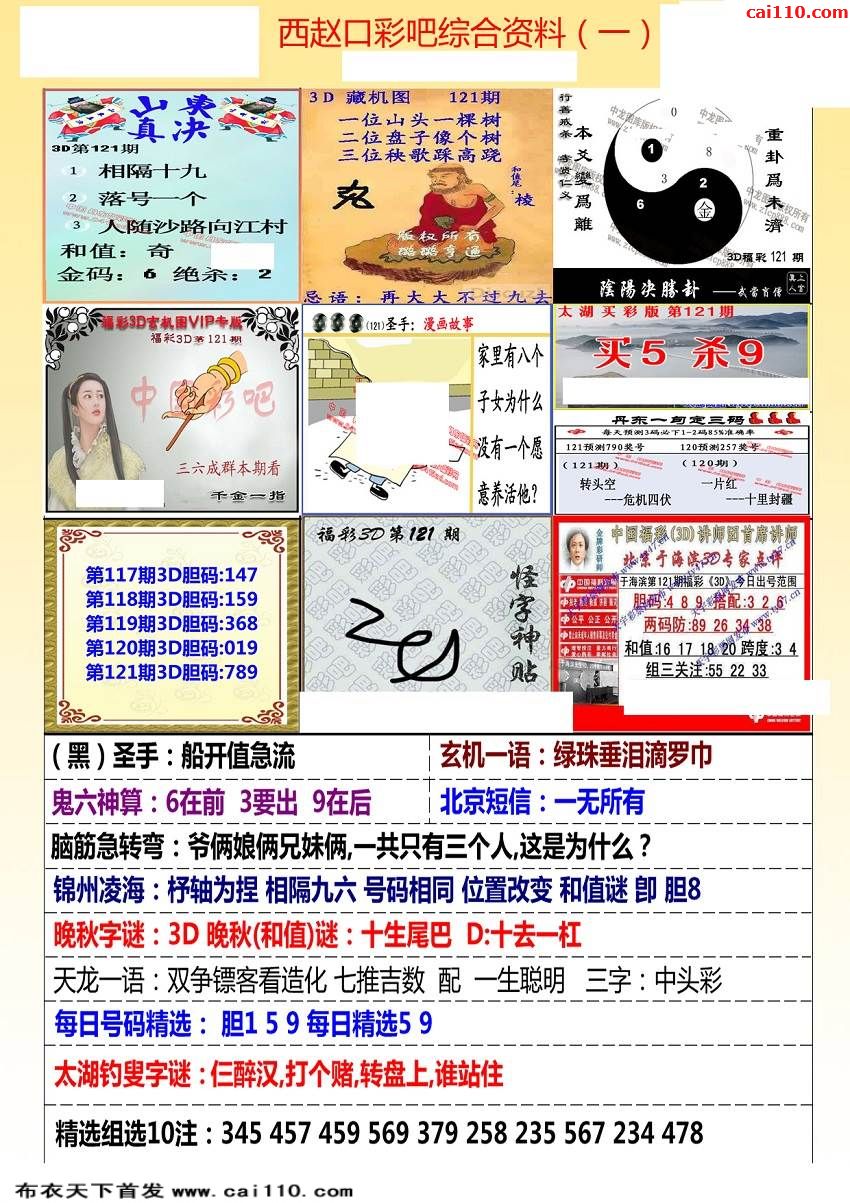 cai110.com
西赵口彩吧综合资料（一）
3D第121期
1 相隔十九
2 落号一个
3 人随沙路向江村
和值：奇
金码：6 绝杀：2
3D 藏机图 121期
一位山头一棵树
二位盘子像个树
三位秧歌踩高跷
和值尾：棱
版权所有
忌语：再大大不过九去
行善戒杀 孝贤仁义
本爻變爲離
重卦爲未濟
0
1
8
3
2
6
金
3D福彩 121 期
陰陽决勝卦 ——武當肖僧
福彩3D玄机图VIP专版
福彩3D第121期
中国彩吧
三六成群本期看
千金一指
(121)圣手：漫画故事
家里有八个
子女为什么
没有一个愿
意养活他？
太湖买彩版 第121期
买5 杀9
丹东一句定三码
每天预测3码必下1-2码85%准确率
121预测790奖号 120预测257奖号
（121期） （120期）
转头空 一片红
----危机四伏 ----十里封疆
第117期3D胆码:147
第118期3D胆码:159
第119期3D胆码:368
第120期3D胆码:019
第121期3D胆码:789
福彩3D第121 期
怪字神贴
金牌彩研师
中国福彩(3D)讲师团首席讲师
北京于海滨3D专家点评
于海滨第121期福彩《3D》今日出号范围
胆码:4 8 9 搭配:3 2 6
两码防:89 26 34 38
和值:16 17 18 20 跨度:3 4
组三关注:55 22 33
公平 公正 公开
（黑）圣手：船开值急流
玄机一语：绿珠垂泪滴罗巾
鬼六神算：6在前 3要出 9在后
北京短信：一无所有
脑筋急转弯：爷俩娘俩兄妹俩,一共只有三个人,这是为什么？
锦州凌海：杼轴为捏 相隔九六 号码相同 位置改变 和值谜 卽 胆8
晚秋字谜：3D 晚秋(和值)谜：十生尾巴 D:十去一杠
天龙一语：双争镖客看造化 七推吉数 配 一生聪明 三字：中头彩
每日号码精选： 胆1 5 9 每日精选5 9
太湖钓叟字谜：仨醉汉,打个赌,转盘上,谁站住
精选组选10注：345 457 459 569 379 258 235 567 234 478
布衣天下首发 www.cai110.com